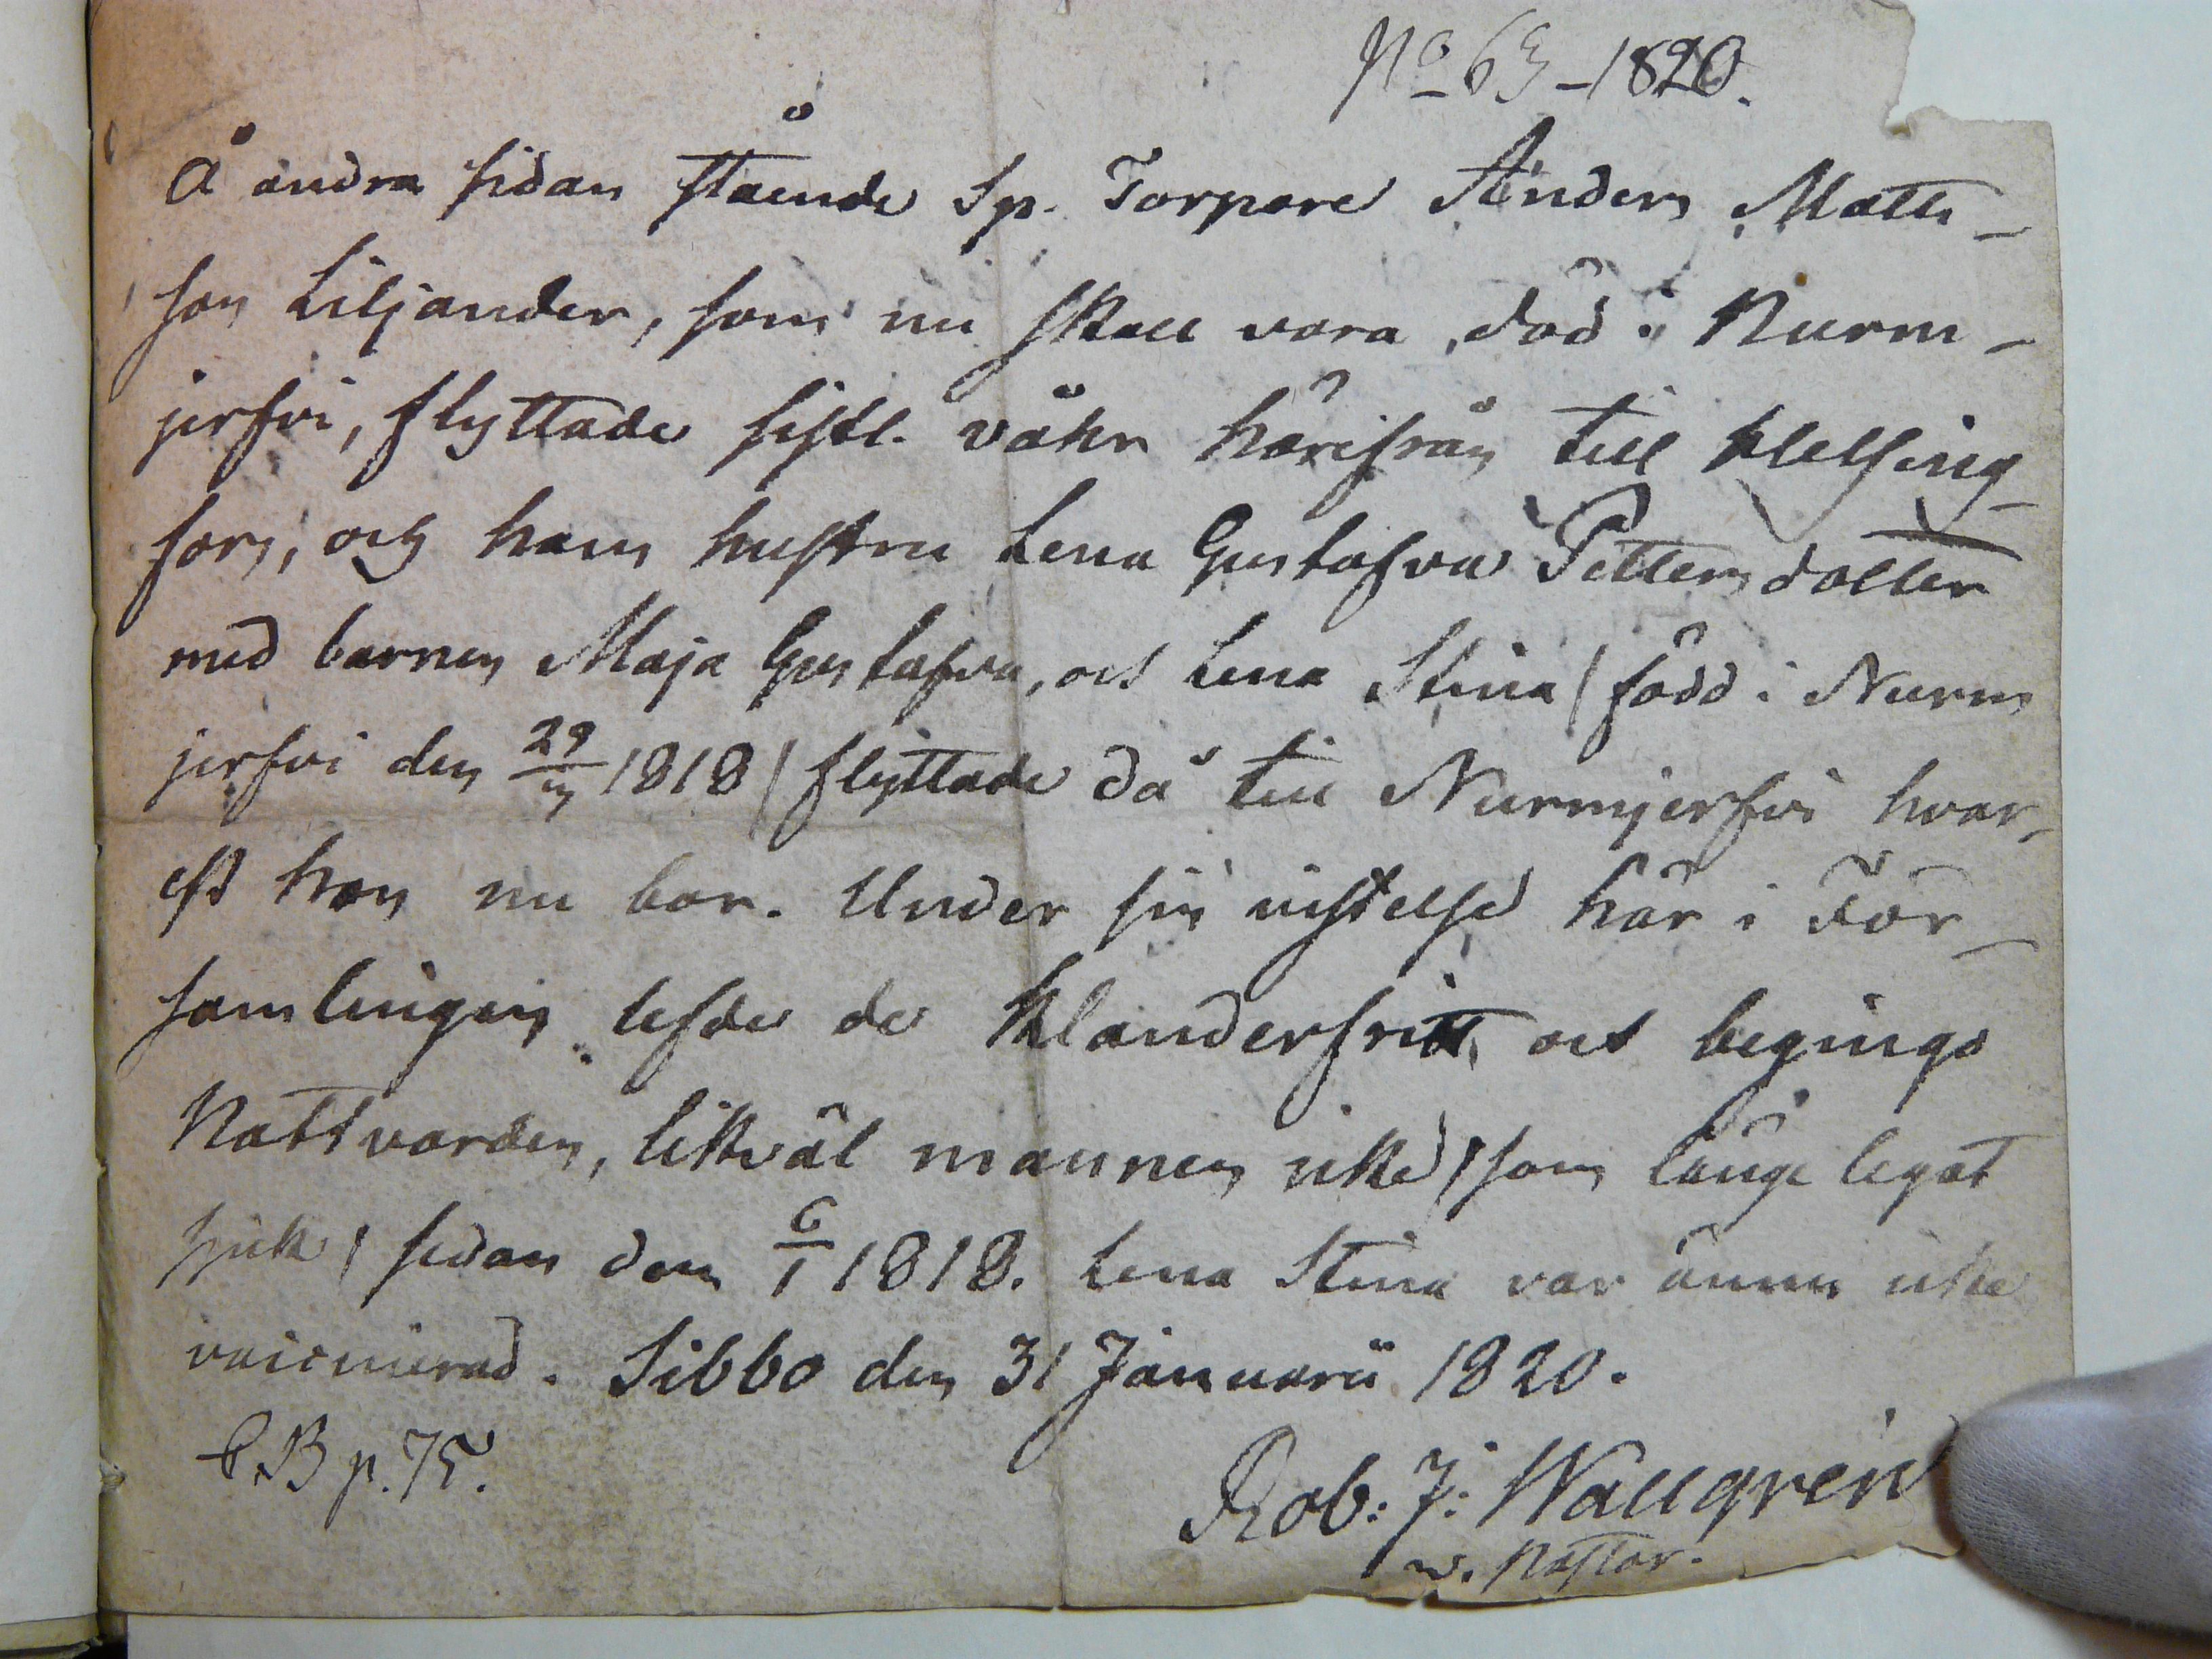 No 63 - 1820.
Å andra sidan stående Sp. Torpare Anders Matts-
son Liljander, som nu skall vara död i Nurm-
jerfvi, flyttade sistl. våhr härifrån till Helsing-
fors, och hans hustru Lena Gustafva Pettersdotter
med barnen Maja Gustafva, och Lena Stina / född i Nurm
jerfvi den 29/ 1818 / flyttade då till Nurmjerfvi hvar-
est hon nu bor. Under sin vistelse här i För-
samlingen lefde de klanderfritt och begingo
Nattvarden, likväl mannen icke / som länge legat
sjuk / sedan den 6/1 1818. Lena Stina var ännu icke
vaccinerad. Sibbo den 31 Januarii 1820.
C.B p. 75.
Rob: J: Wallgren
v. Pastor.